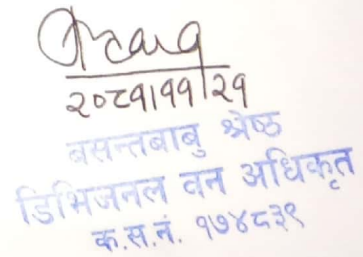 २०८१।११।२१
बसन्तबाबु श्रेष्ठ
डिभिजनल वन अधिकृत
क.स.नं. १७४८३९